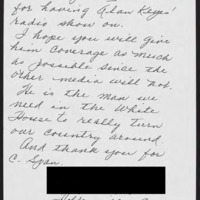 for having Alan Keyes'
radio show on.
I hope you will give
him coverage as much
as possible since the
other media will not.
He is the man we
need in the White
House to really turn
our country around.
And thank you for
C-Span.